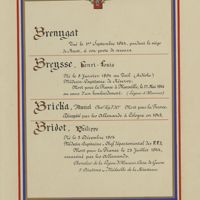 Brenngat
Tué le 1er Septembre 1944, pendant le siège
de Brest, à son poste de secours.
Breysse, Henri-Louis
Né le 8 Janvier 1894 au Teil (Ardèche)
Médecin-Capitaine de Réserve.
Mort pour la France à Marseille, 27 Mai 1944
au cours d'un bombardement. (Légion d'Honneur)
Bricka, Marcel Mort pour la France.
par les Allemands à Cologne en 1943.
Bridot, Philippe
Né le 8 Décembre 1904
Médecin-Capitaine, Chef départemental des F.F.I.
Mort pour la France le 29 Juillet 1944,
assassiné par les Allemands.
Chevalier de la Légion d'Honneur, Croix de Guerre
2 citations, Médaille de la Résistance